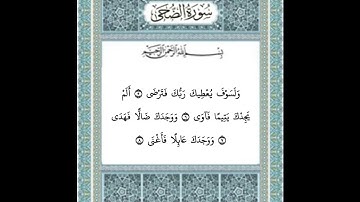 سورة الضحى
بسم الله الرحمن الرحيم
وَلَسَوْفَ يُعْطِيكَ رَبُّكَ فَتَرْضَى ۝ أَلَمْ
يَجِدْكَ يَتِيمًا فَآوَى ۝ وَوَجَدَكَ ضَالًّا فَهَدَى
۝ وَوَجَدَكَ عَائِلًا فَأَغْنَى ۝